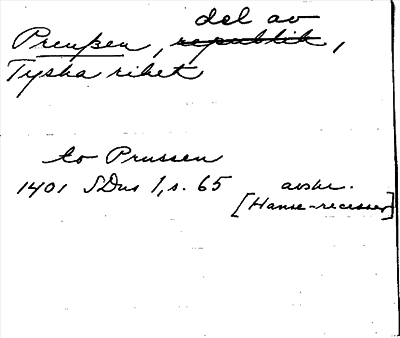 del av
Preußen, republik,
Tyska riket
to Prussen
1401 SDns 1, s. 65 avskr.
[Hanse-recesser]